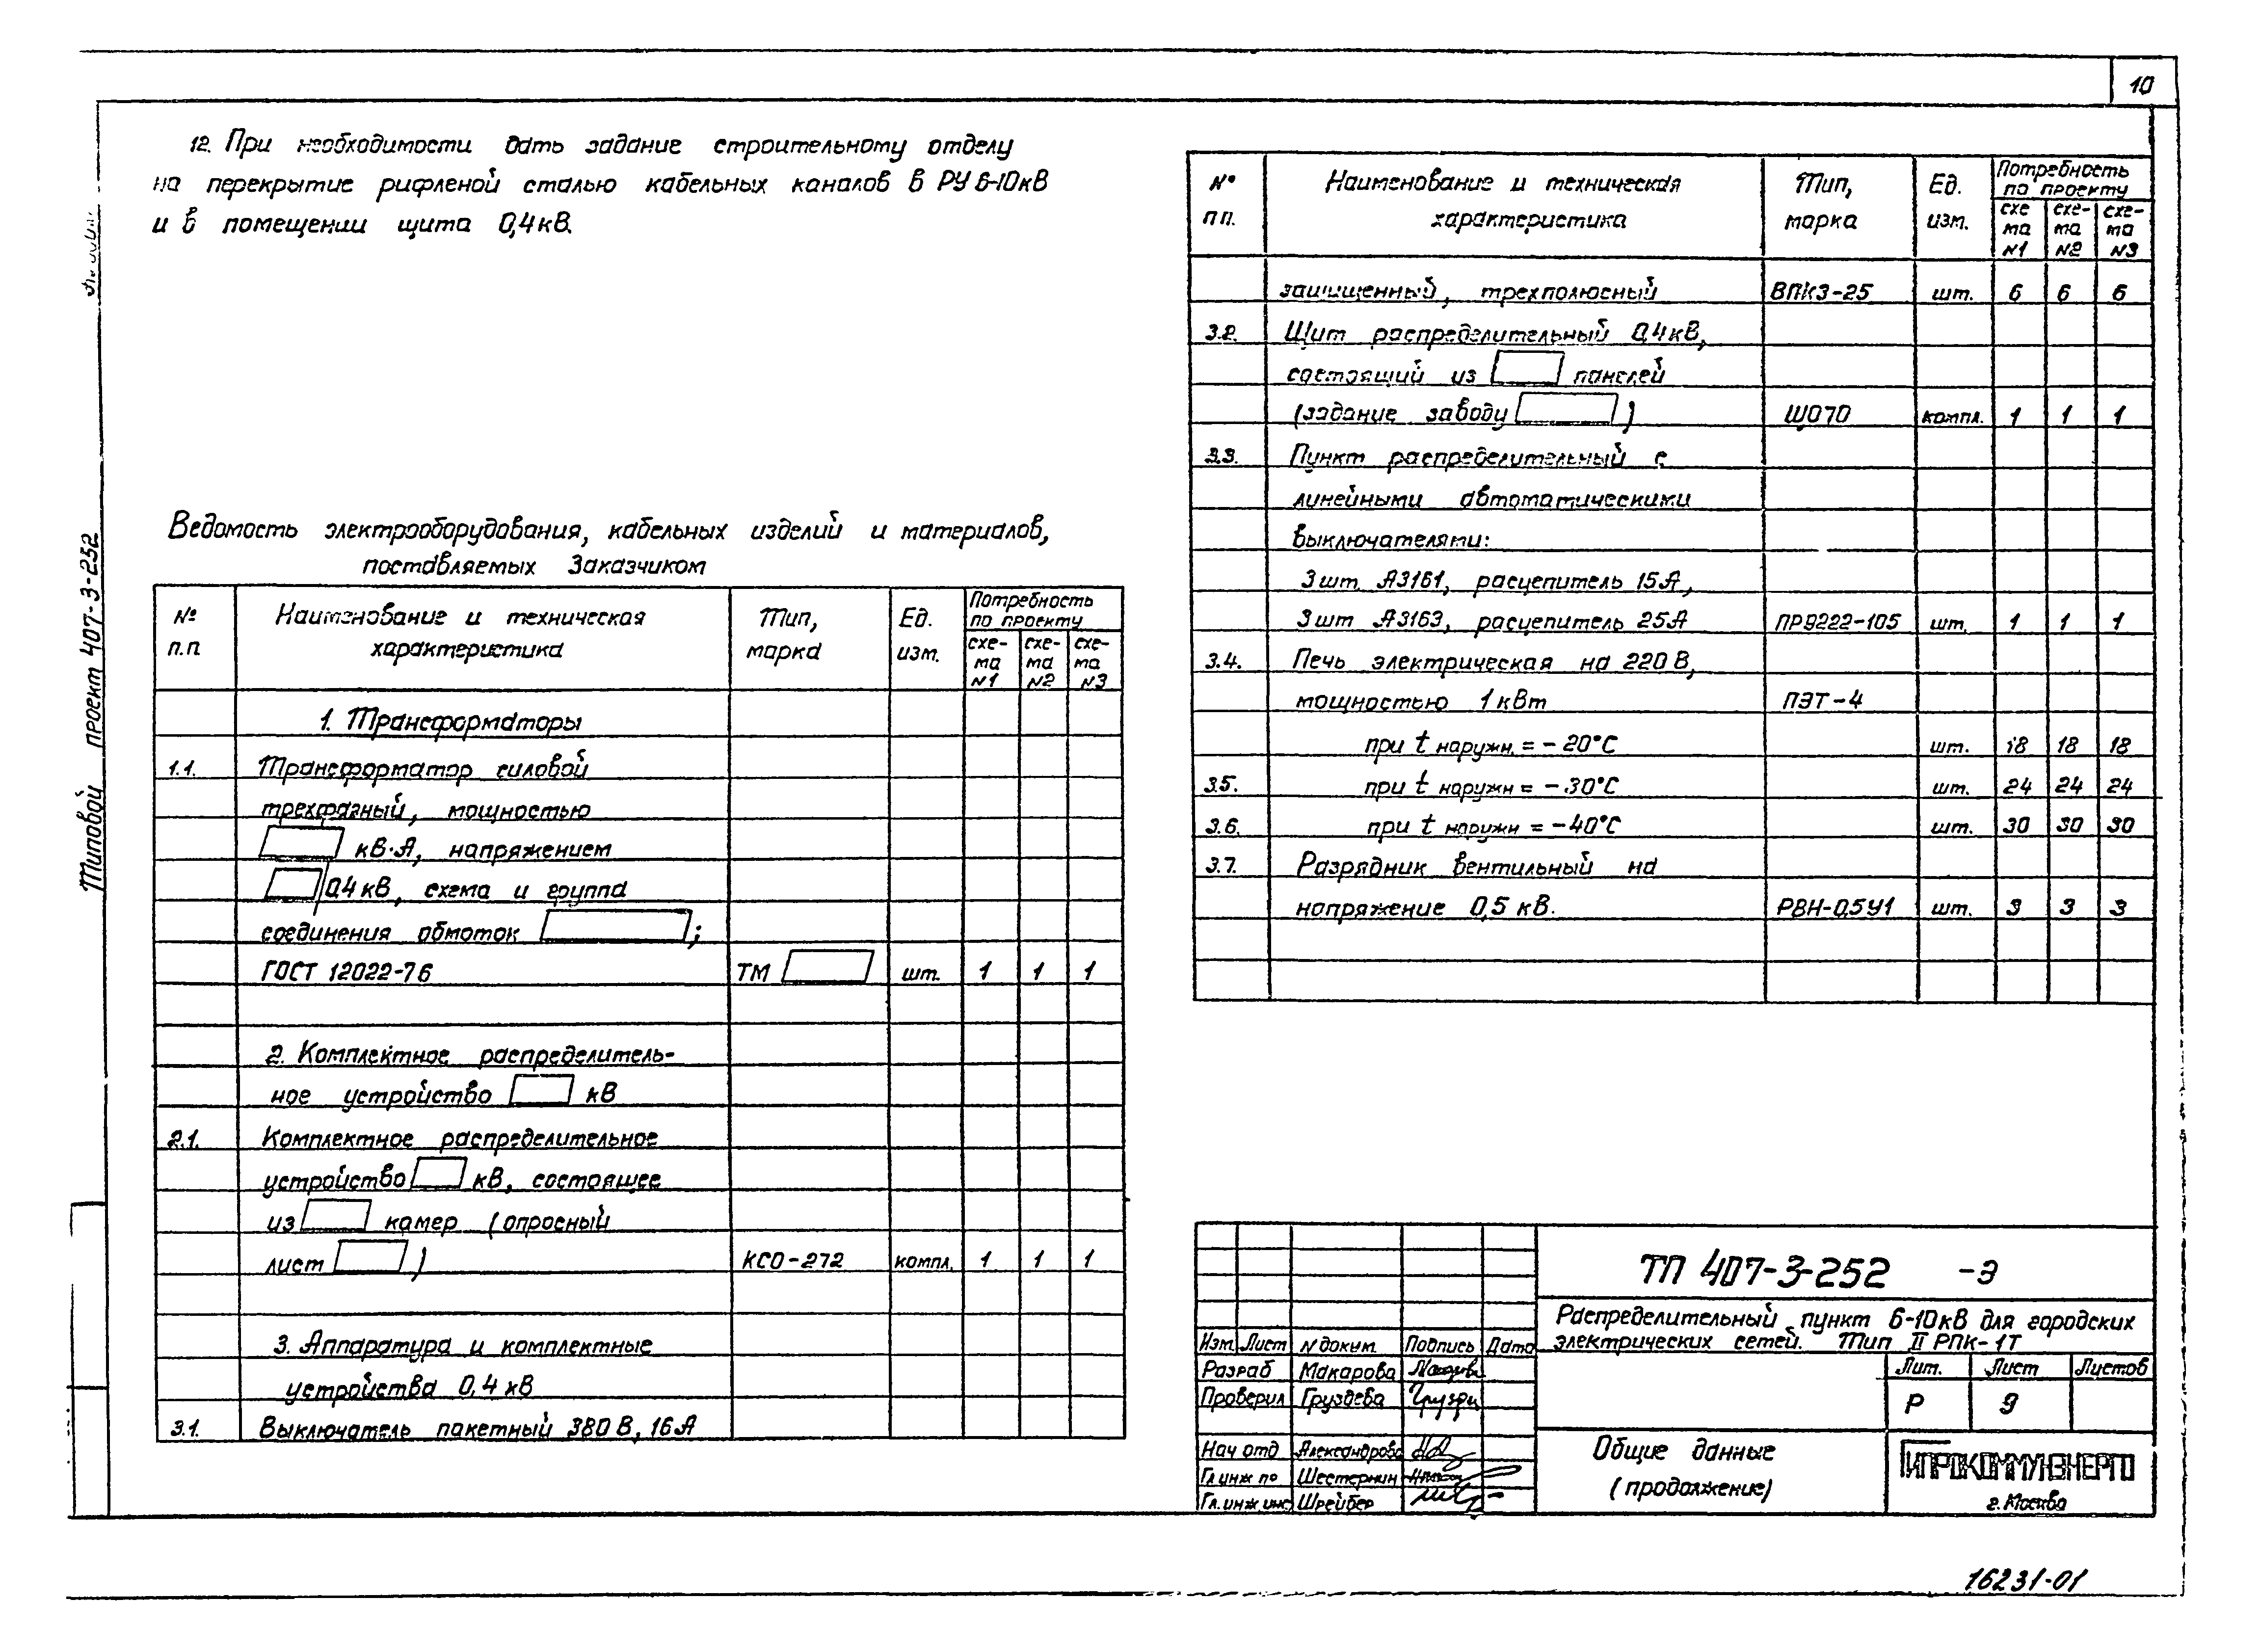 10
12. При необходимости дать задание строительному отделу
на перекрытие рифленой сталью кабельных каналов в РУ 6-10кВ
и в помещении щита 0,4кВ.
Типовой проект 407-3-252
Ведомость электрооборудования, кабельных изделий и материалов,
поставляемых Заказчиком
№ п.п Наименование и техническая характеристика Тип, марка Ед. изм. Потребность по проекту схе-ма N1 схе-ма N2 схе-ма N3
1. Трансформаторы
1.1. Трансформатор силовой
трехфазный, мощностью
кВ·А, напряжением
/0,4кВ, схема и группа
соединения обмоток ;
ГОСТ 12022-76 ТМ шт. 1 1 1
2. Комплектное распределитель-
ное устройство кВ
2.1. Комплектное распределительное
устройство кВ, состоящее
из камер (опросный
лист ) КСО-272 компл. 1 1 1
3. Аппаратура и комплектные
устройства 0,4 кВ
3.1. Выключатель пакетный 380 В, 16А
№ пп. Наименование и техническая характеристика Тип, марка Ед. изм. Потребность по проекту схе ма N1 схе-ма N2 схе-ма N3
защищенный, трехполюсный ВПК3-25 шт. 6 6 6
3.2. Щит распределительный 0,4кВ,
состоящий из панелей
(задание заводу ) ЩО70 компл. 1 1 1
3.3. Пункт распределительный с
линейными автоматическими
выключателями:
3шт. А3161, расцепитель 15А,
3шт А3163, расцепитель 25А ПР9222-105 шт. 1 1 1
3.4. Печь электрическая на 220В,
мощностью 1кВт ПЭТ-4
при t наружн. = -20°С шт. 18 18 18
3.5. при t наружн = -30°С шт. 24 24 24
3.6. при t наружн = -40°С шт. 30 30 30
3.7. Разрядник вентильный на
напряжение 0,5 кВ. РВН-0,5У1 шт. 3 3 3
ТП 407-3-252 -Э
Распределительный пункт 6-10кВ для городских
электрических сетей. Тип II РПК-1Т
Изм. Лист N докум. Подпись Дата
Разраб Макарова
Проверил Груздева
Нач отд Александрова
Гл инж по Шестернин
Гл. инж инс Шрейбер
Лит. Лист Листов
Р 9
Общие данные
(продолжение)
ГИПРОКОММУНЭНЕРГО
г. Москва
16231-01